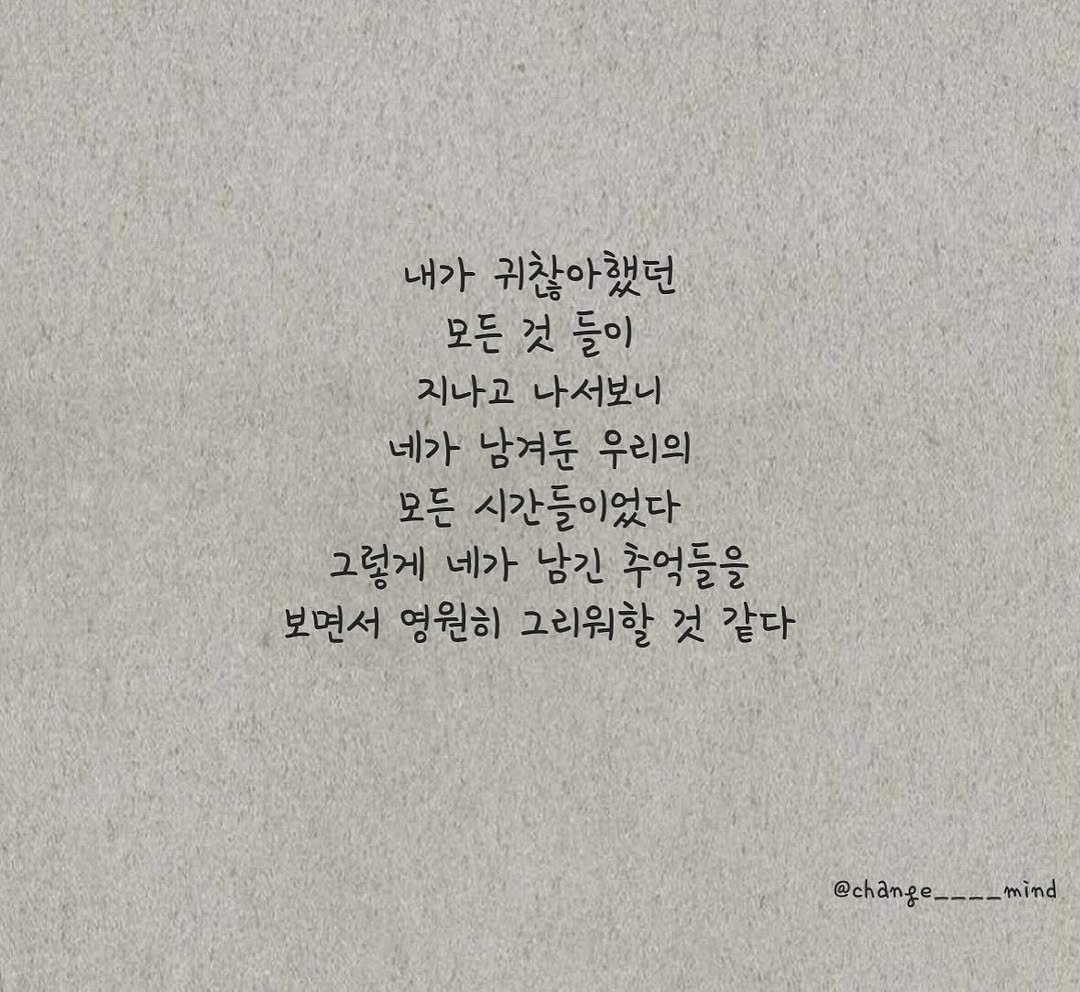 내가 귀찮아했던
모든 것 들이
지나고 나서보니
네가 남겨둔 우리의
모든 시간들이었다
그렇게 네가 남긴 추억들을
보면서 영원히 그리워할 것 같다
@change____mind